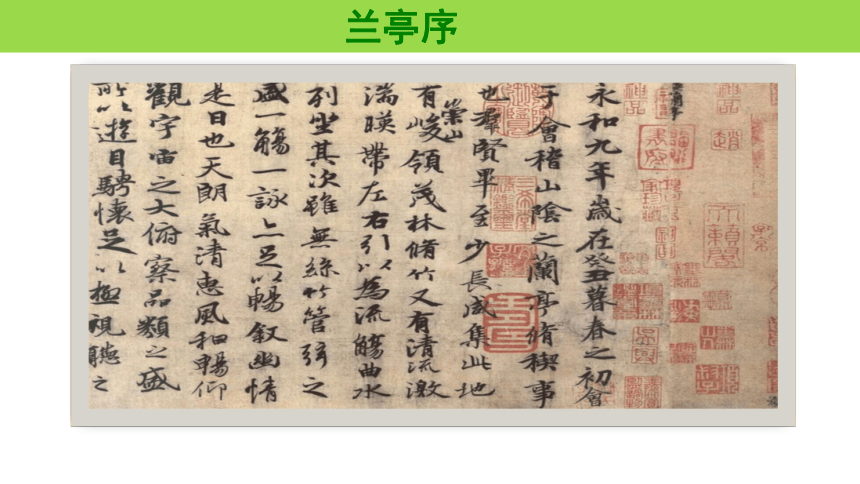 兰亭序
永和九年歲在癸丑暮春之初會
于會稽山陰之蘭亭脩稧事
也羣賢畢至少長咸集此地
有崇山峻領茂林脩竹又有清流激
湍暎帶左右引以為流觴曲水
列坐其次雖無絲竹管弦之
盛一觴一詠亦足以暢敘幽情
是日也天朗氣清惠風和暢仰
觀宇宙之大俯察品類之盛
所以遊目騁懷足以極視聽之